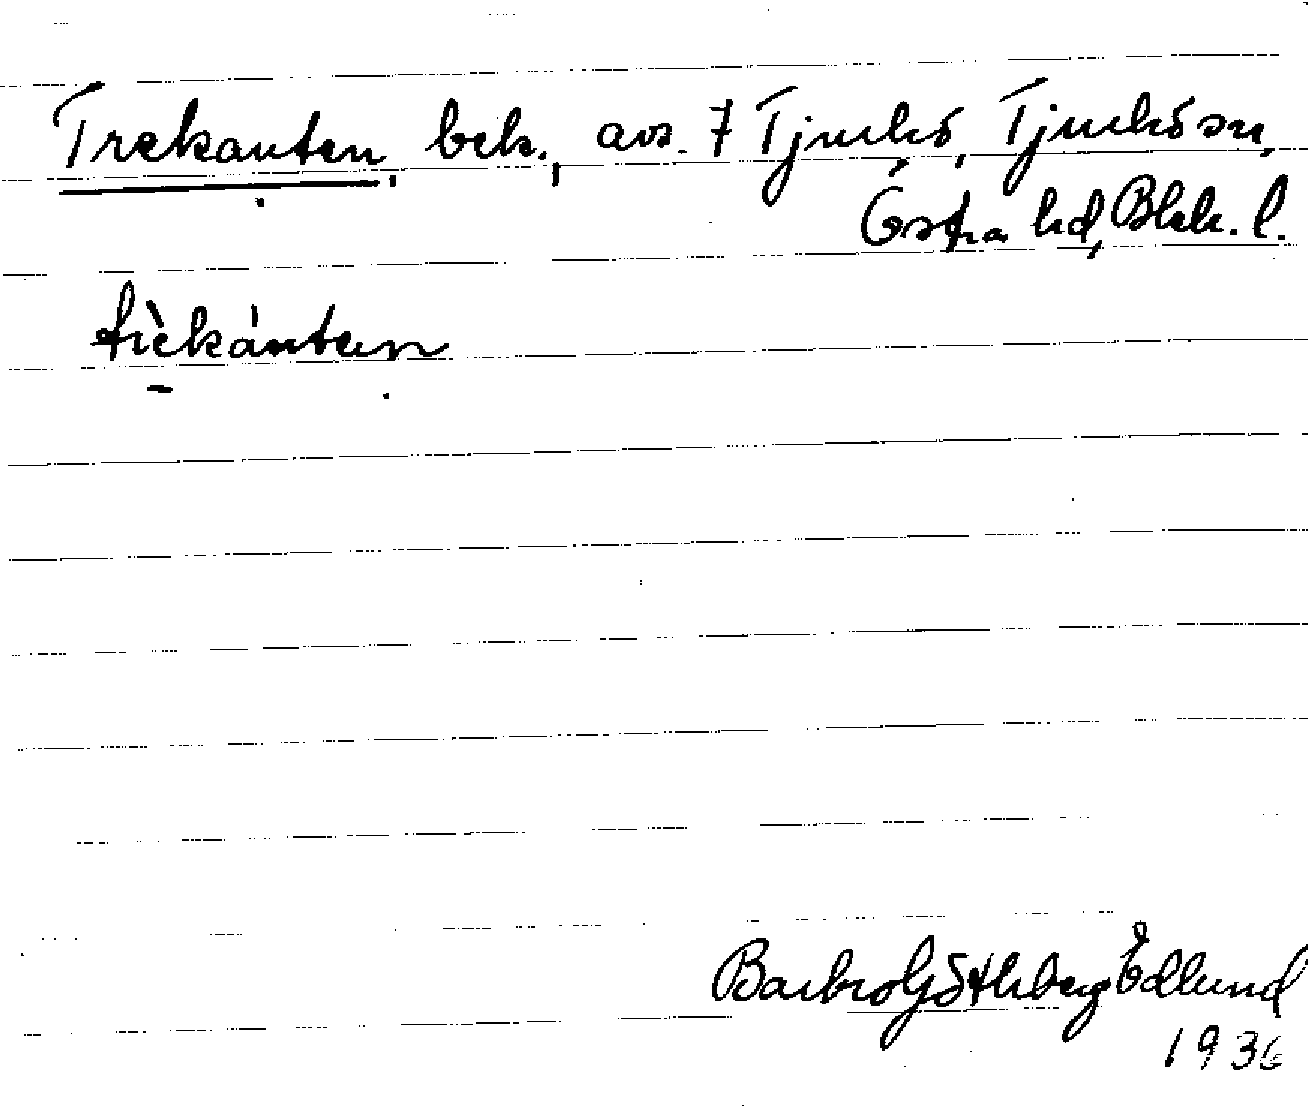 Trekanten, bek., avs. 7 Tjurkö, Tjurkö sn,
Östra hd, Blek. l.
trèkánten
Barbro Göthberg Edlund
1936